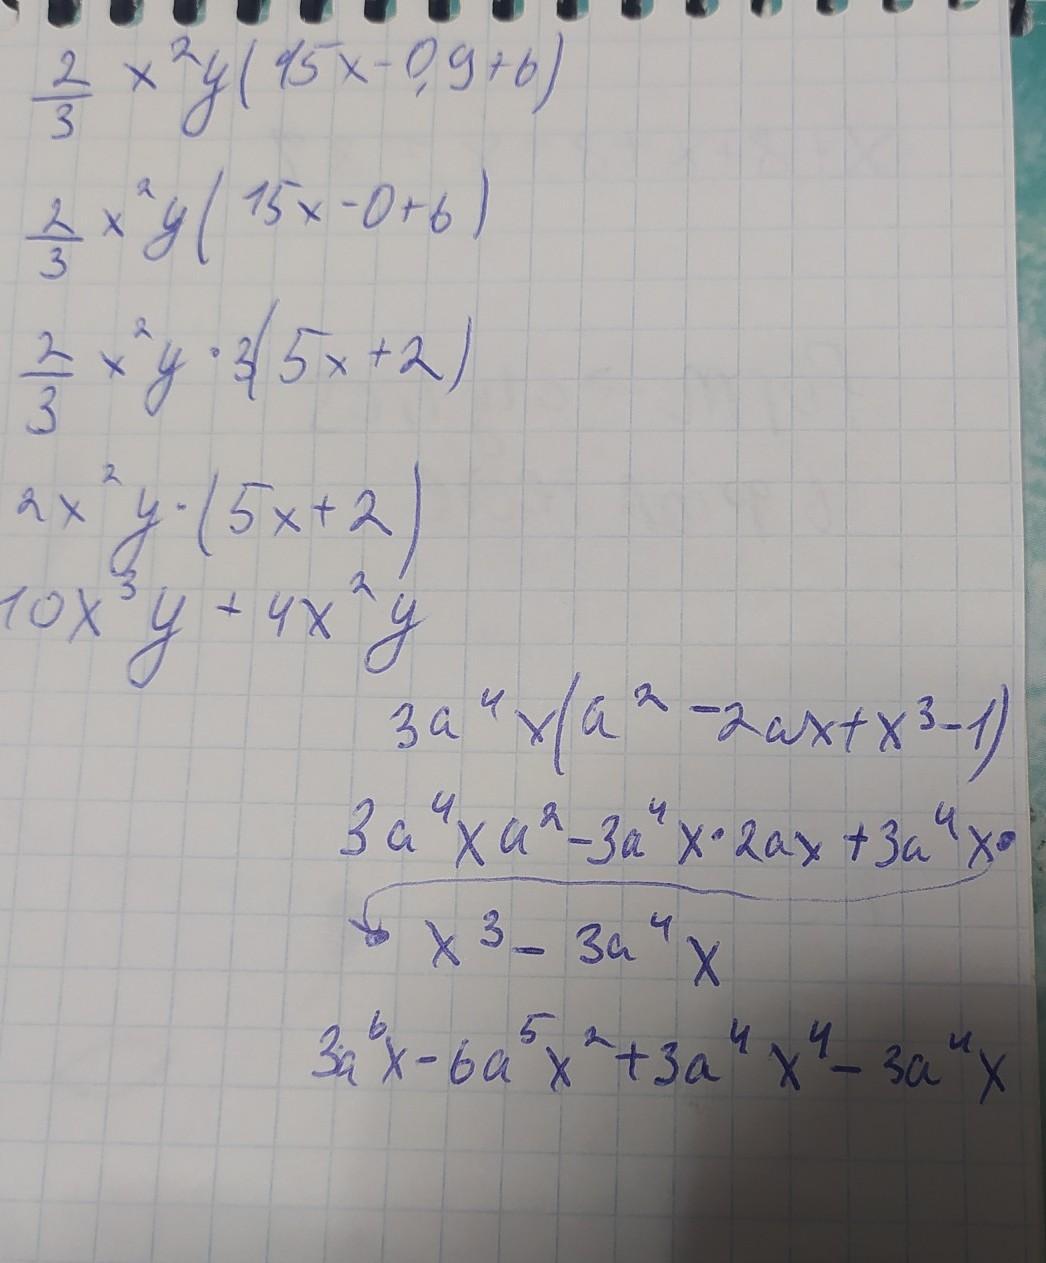 2/3 x²y(15x-0,9+6)
2/3 x²y(15x-0+6)
2/3 x²y·3(5x+2)
2x²y·(5x+2)
10x³y+4x²y
3a⁴x(a²-2ax+x³-1)
3a⁴xa²-3a⁴x·2ax+3a⁴x·
x³-3a⁴x
3a⁶x-6a⁵x²+3a⁴x⁴-3a⁴x